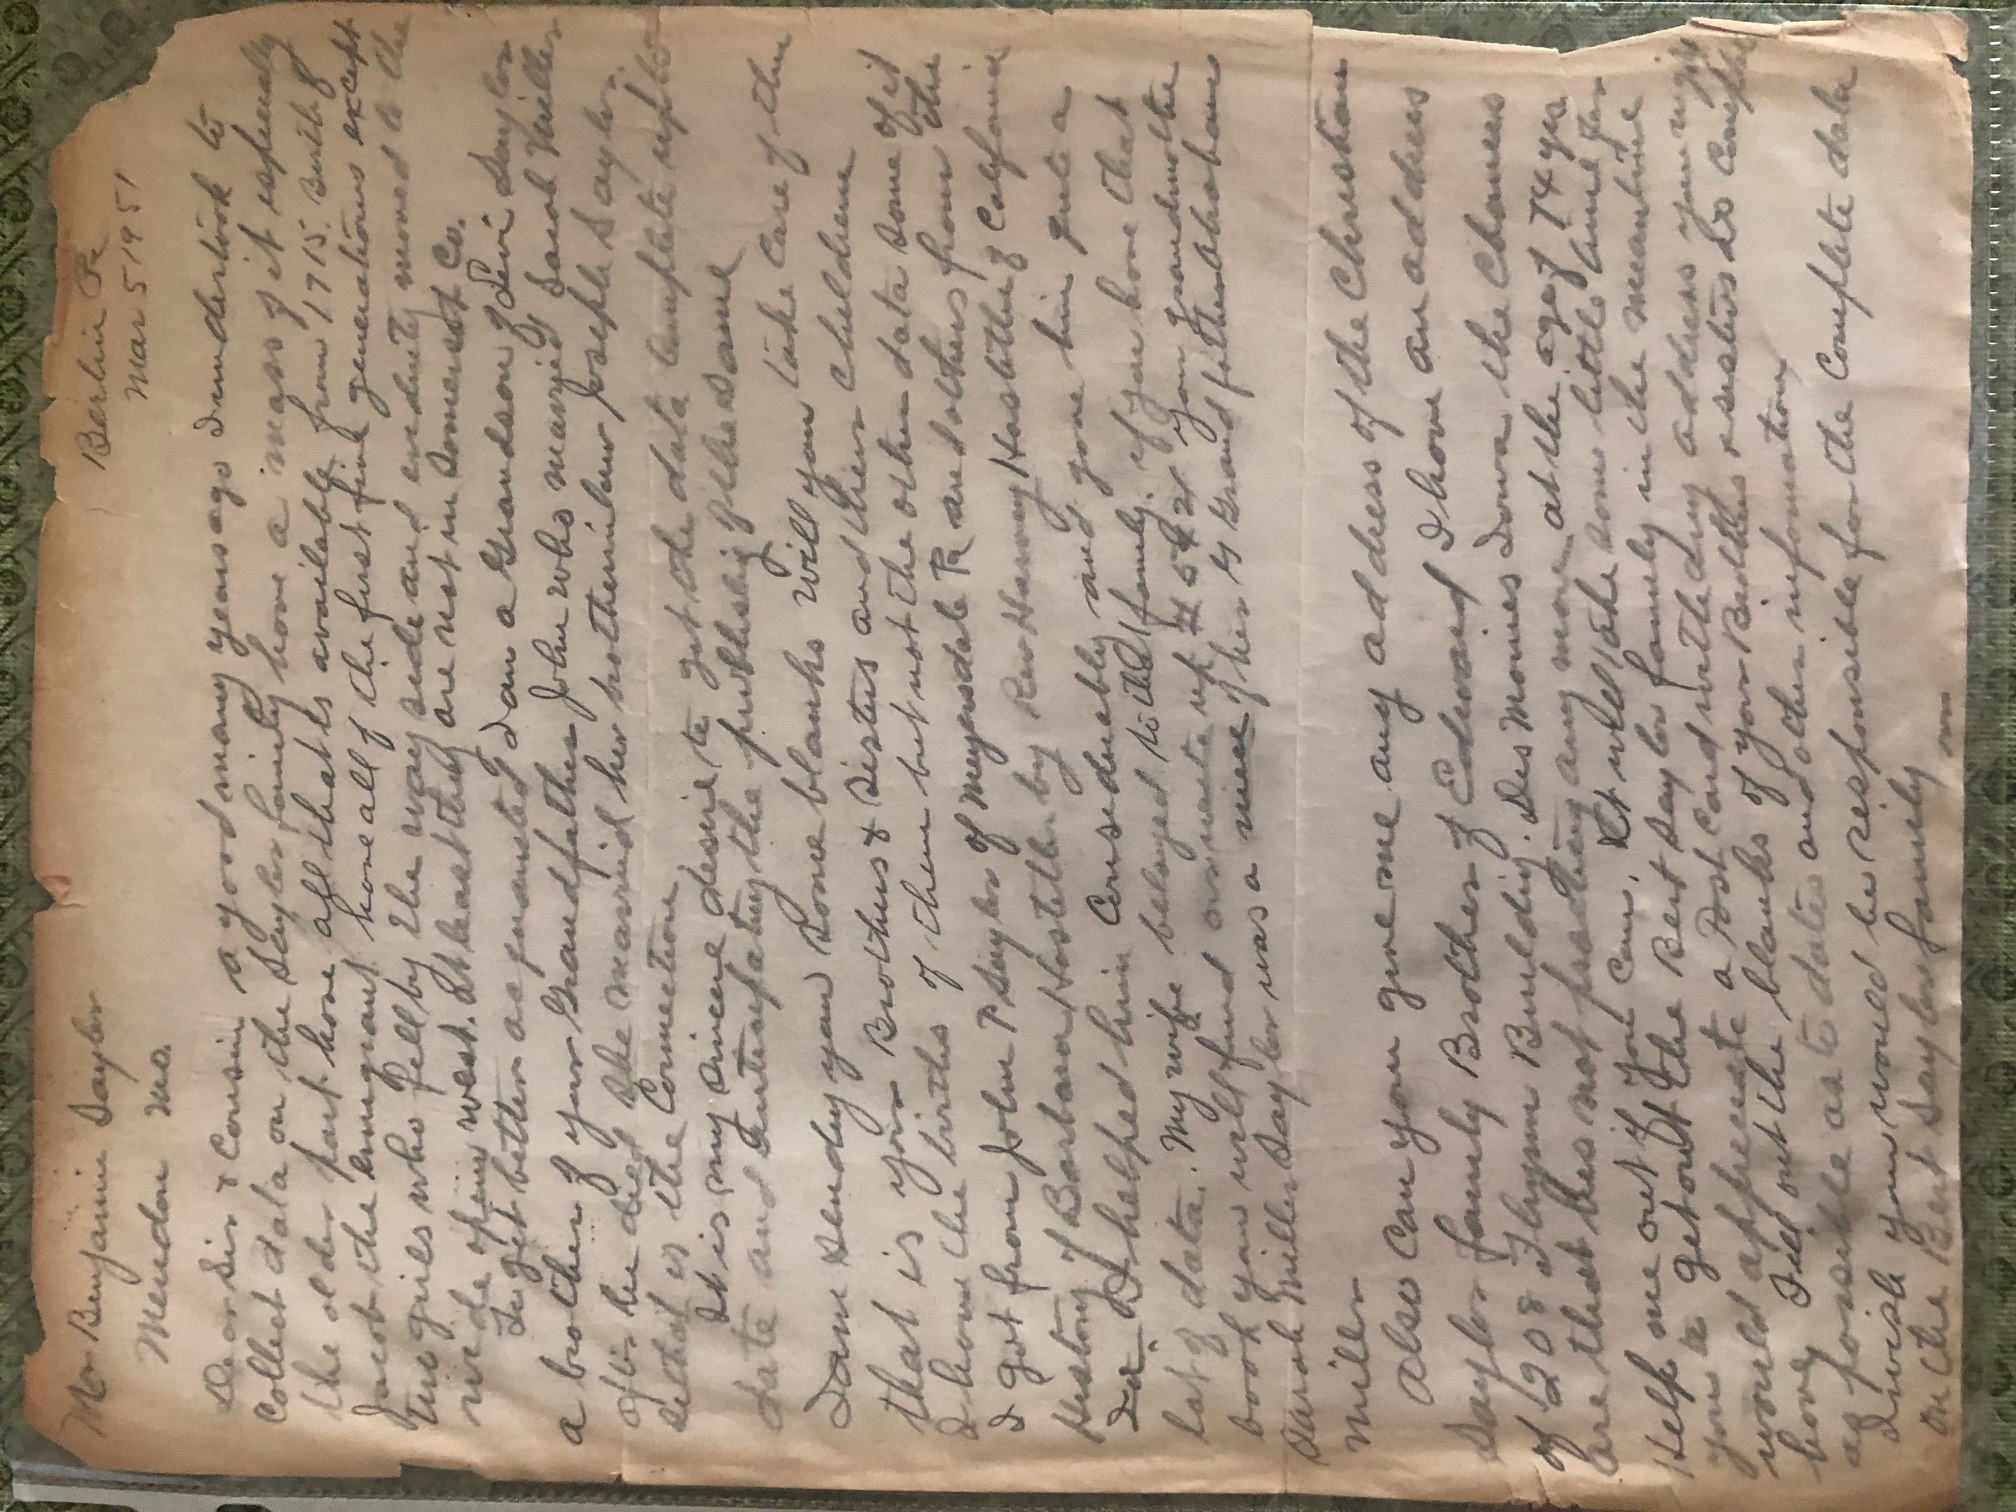 Berlin Pa
Mar 5 1951
Mr. Benjamin Saylor
Mendon Mo.
Dear Sir & Cousin, a good many years ago I undertook to
collect data on the Saylor family have a mass of it especially
the older part have all that is available from 1715. Birth of
Jacob the emigrant have all of the first five generations except
two girls who fell by the way side and evidently moved to the
wide open west. At least they are not in Somerset Co.
To get better acquainted I am a Grandson of Levi Saylor
a brother of your Grandfather John who married Sarah Miller
after he died she married her brotherinlaw Joseph Saylor
So that is the Connection
It is my sincere desire to get the data complete up to
date and anticipating the publishing of the same
I am sending you some blanks will you take care of them
that is your Brothers & Sisters and their children
I have the births of them but not the other data some of it
I got from John P Saylor of Meyersdale Pa and others from the
History of Barbara Hostetler by Rev Harvey Hostetler of California
I helped him considerably and gave him quite a
lot of data. My wife belonged to that family. if you have that
book you will find our route up # 5421 your grandmother
Sarah Miller Saylor was a niece of his Grandfather Abraham
Miller
Also can you give me any address of the Christian
Saylor family Brother of Edward I have an address
of 1208 Flynn Building. Des Moines Iowa the chances
are that he is not practicing any more at the age of 74 yrs
Help me out if you can. It will take some little time for
you to get out the Bent Saylor family in the meantime
would appreciate a Post card with any address you might
have Fill out the blanks of your Brothers & sisters as complete
as possible as to dates and other information
I wish you would be responsible for the complete data
on the Bent Saylor family